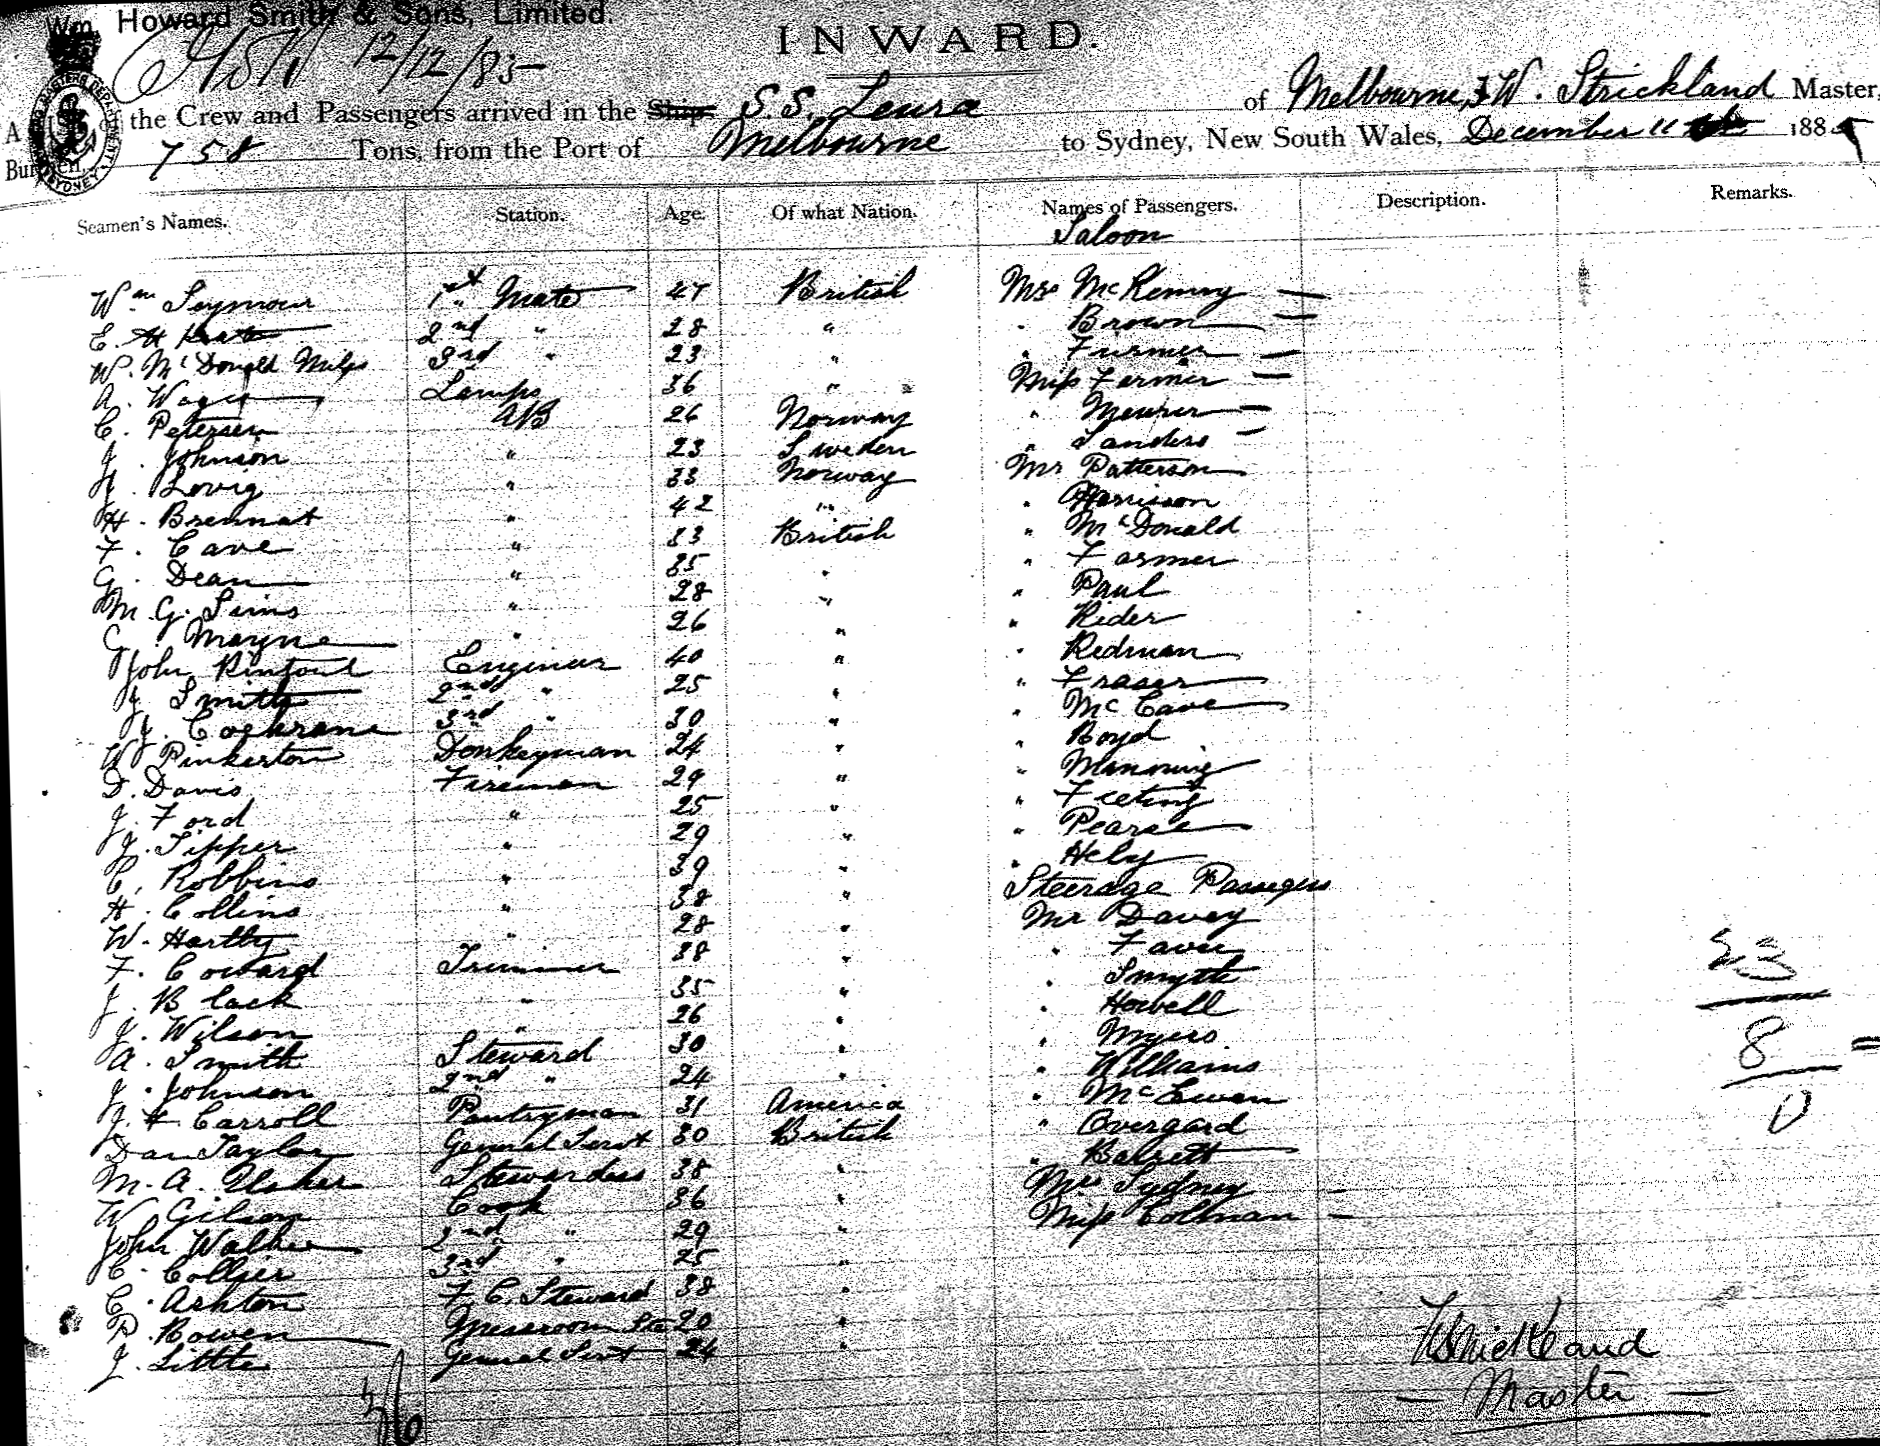 Wm. Howard Smith & Sons, Limited.
12/12/85
INWARD.
A the Crew and Passengers arrived in the Ship S.S. Leura of Melbourne, W. Strickland Master,
Bur 758 Tons, from the Port of Melbourne to Sydney, New South Wales, December 11 1885
Seamen's Names. Station. Age. Of what Nation. Names of Passengers. Description. Remarks.
Saloon
Wm Seymour 1st Mate 47 British Mrs McKenny —
E. H 2nd " 28 " " Brown —
W. McDonald 3rd " 23 " " Furmer —
A. Lamps 36 " Miss Farmer —
C. Petersen AB 26 Norway " Meurer —
J. Johnson " 23 Sweden " Sanders —
H. Lovig " 33 Norway Mr Patterson
H. Brennat " 42 " " Harrison
F. Cave " 33 British " McDonald
G. Dean " 35 " " Farmer
M. G. Sims " 28 " " Paul
G. Mayne " 26 " " Rider
John Rintoul Engineer 40 " " Redman
J Smith 2nd " 25 " " Fraser
J. Cochrane 3rd " 30 " " McCave
W Pinkerton Donkeyman 24 " " Boyd
D. Davis Fireman 29 " " Manning
J. Ford " 25 " "
J. Tipper " 29 " " Pearse
C. Robbins " 39 " " Hely
H. Collins " 38 " Steerage Passegers
W. Hartly " 28 " Mr Davey
F. Coward Trimmer 38 " "
J. Black " 35 " " Smyth
J. Wilson " 26 " " Howell
A. Smith Steward 30 " " Myers
J. Johnson 2nd " 24 " " Williams
J. H. Carroll Pantryman 31 America " McEwen
Dan Taylor General Servt 30 British " Overgard
M. A. Usher Stewardess 38 " " Barrett
W Gilson Cook 36 " Mrs Sydney —
John Walker 2nd " 29 " Miss Colman —
C. Collyer 3rd " 25 "
C. Ashton F. C. Steward 38 "
P. Bowen Messroom Ste 20 "
J. Little General Servt 24 "
23
8 =
0
36
Strickland
— Master —